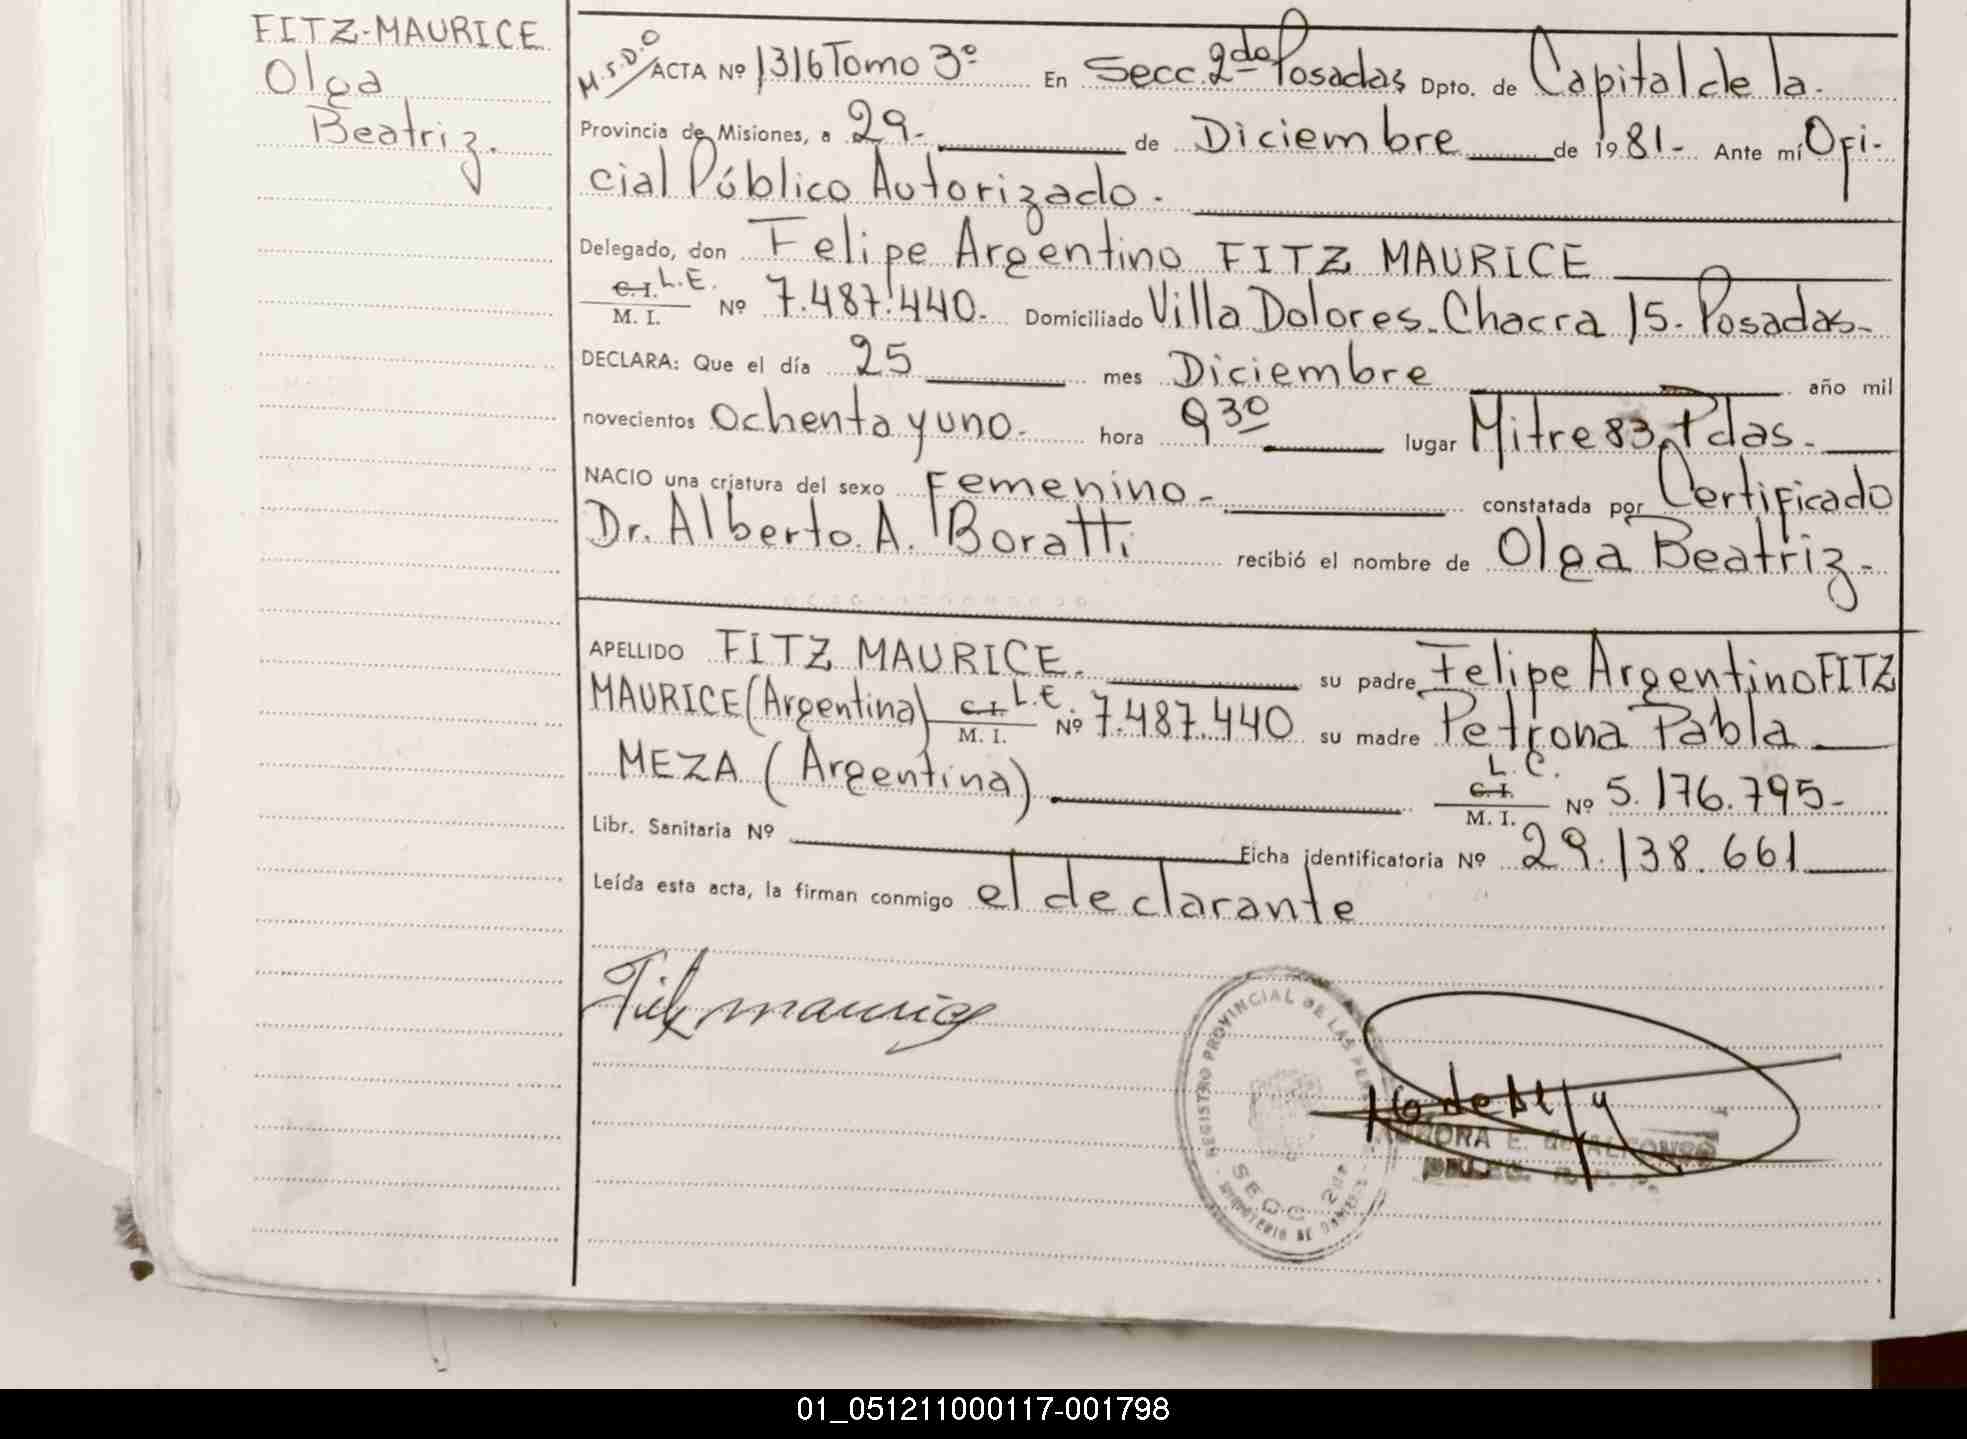 FITZ-MAURICE
Olga
Beatriz.
M.S.D.O
ACTA Nº 1316 Tomo 3º En Secc. 2da Posadas Dpto. de Capital de la.
Provincia de Misiones, a 29.- de Diciembre de 1981.- Ante mí Ofi-
cial Público Autorizado.-
Delegado, don Felipe Argentino FITZ MAURICE
C.I. L.E. Nº 7.487.440.- Domiciliado Villa Dolores.- Chacra 15.- Posadas.-
M. I.
DECLARA: Que el día 25 mes Diciembre año mil
novecientos ochenta y uno.- hora 9 30 lugar Mitre 83. Pdas.-
NACIO una criatura del sexo Femenino.- constatada por Certificado
Dr. Alberto. A. Boratti recibió el nombre de Olga Beatriz.-
APELLIDO FITZ MAURICE. su padre Felipe Argentino FITZ
MAURICE (Argentina) C.I. L.E. Nº 7.487.440 su madre Petrona Pabla
M. I.
MEZA (Argentina) L.C. C.I. Nº 5.176.795-
M. I.
Libr. Sanitaria Nº Ficha identificatoria Nº 29.138.661
Leída esta acta, la firman conmigo el declarante
Fitz maurice
REGISTRO PROVINCIAL DE LAS PER
SECC 2da
MINISTERIO DE
E. de ALFONSO
01_051211000117-001798